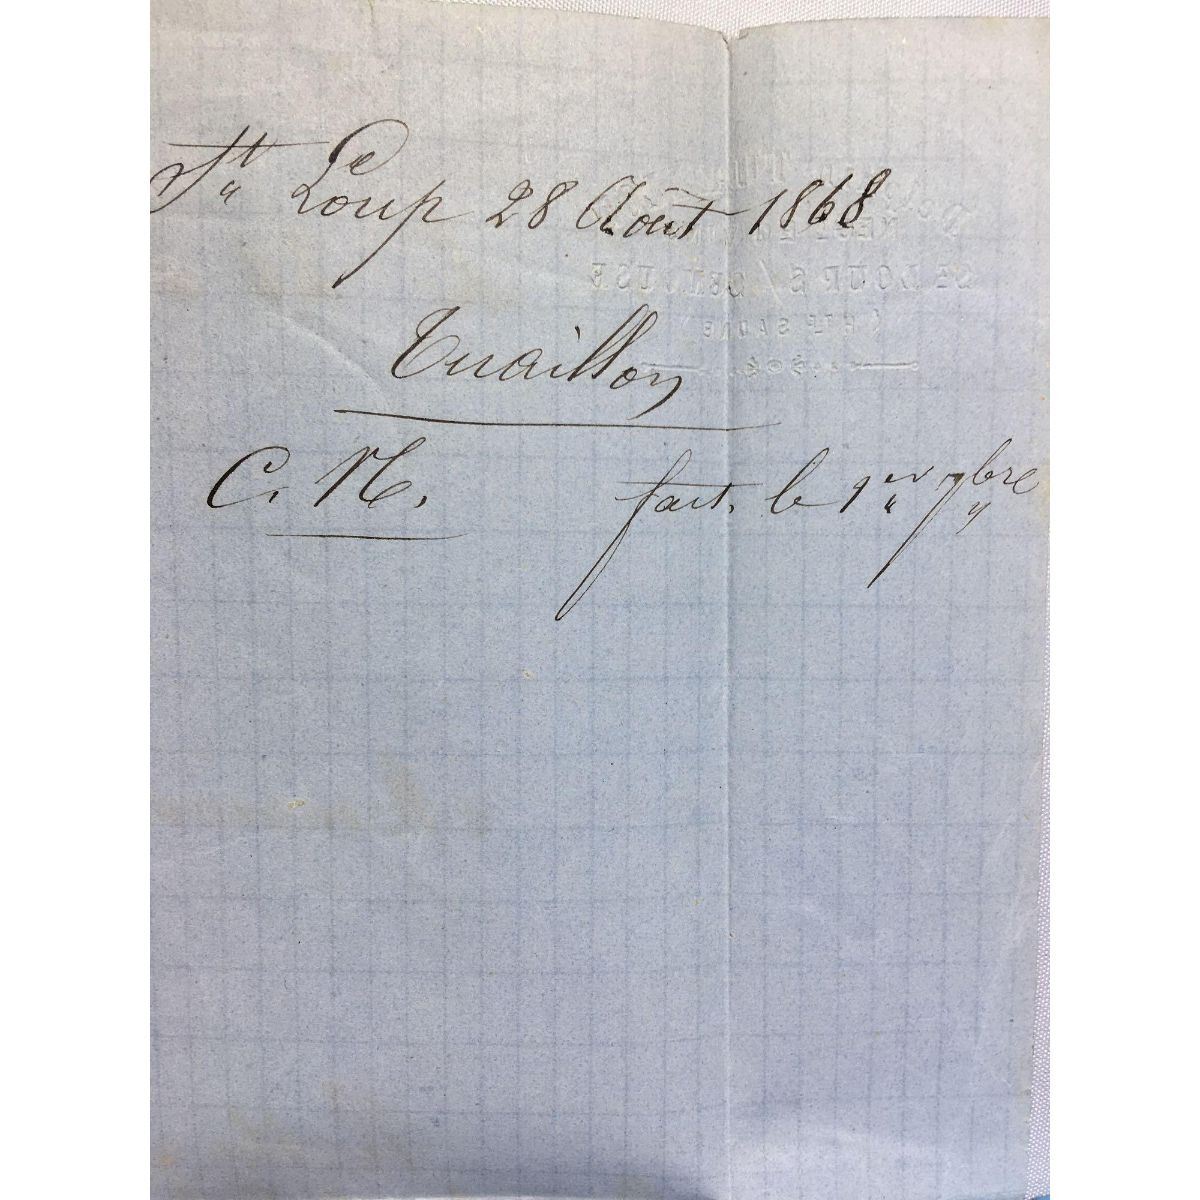 St Loup 28 Août 1868
Tuaillon
C. N. fait le 1er 7bre
St LOUP S/ SEMOUSE
(HTE SAONE)